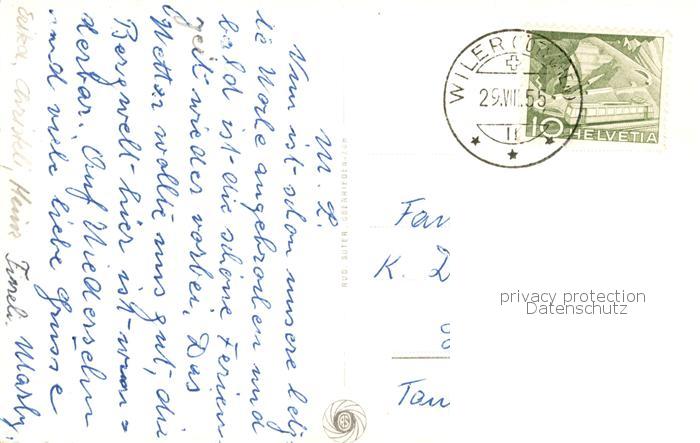 M. L.
Nun ist schon unsere letz
te Woche angebrochen und
bald ist die schöne Ferien-
zeit wieder vorbei. Das
Wetter wollte uns gut, die
Bergwelt hier ist wun=
derbar. Auf Wiedersehn
und viele liebe Grüsse
Erika, Heini
RUD. SUTER, OBERRIEDEN-ZCH
WILER
29.VII.55
10 HELVETIA
Fam
K. Z
Tan
privacy protection
Datenschutz